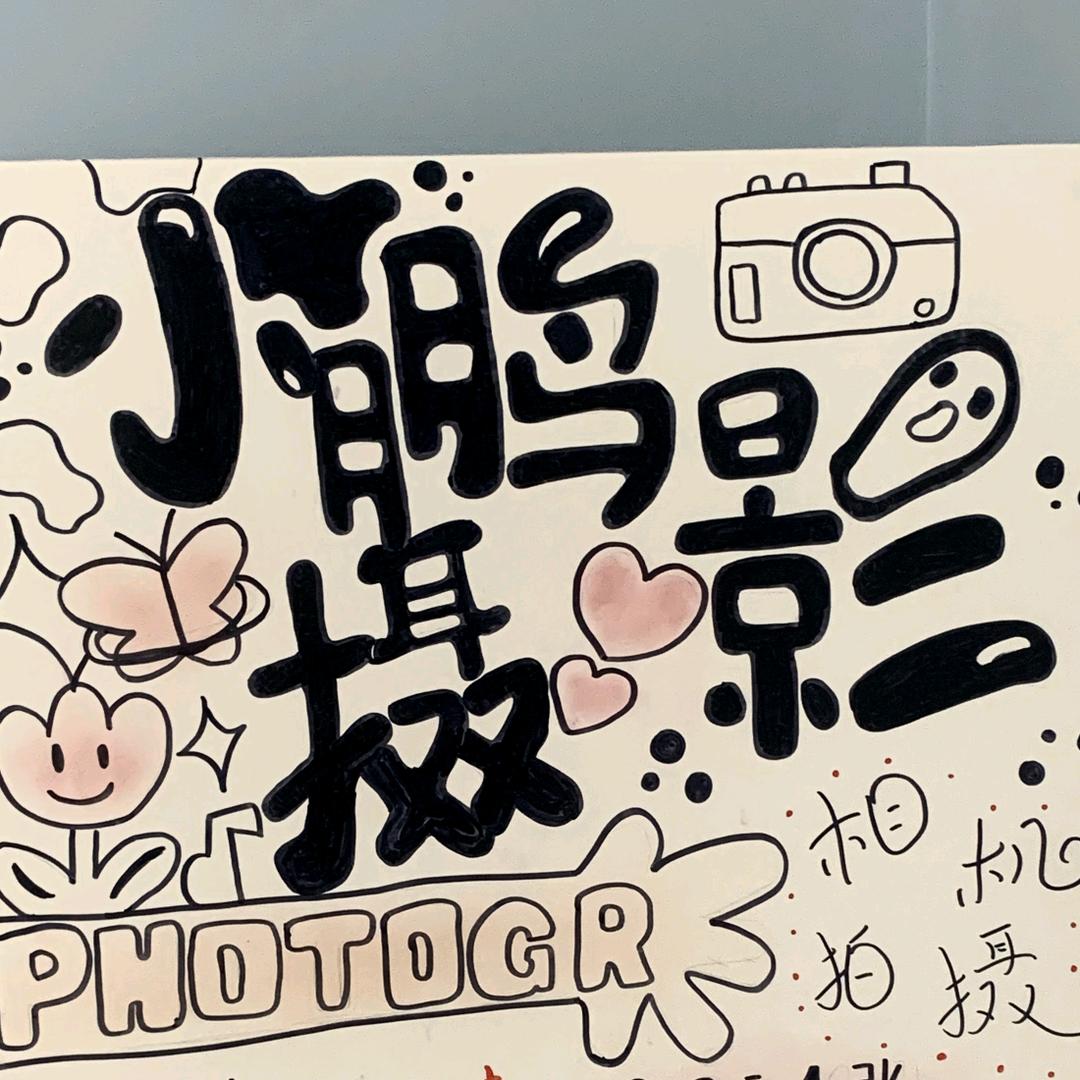 小鹏
摄影
PHOTOGR
相机
拍摄